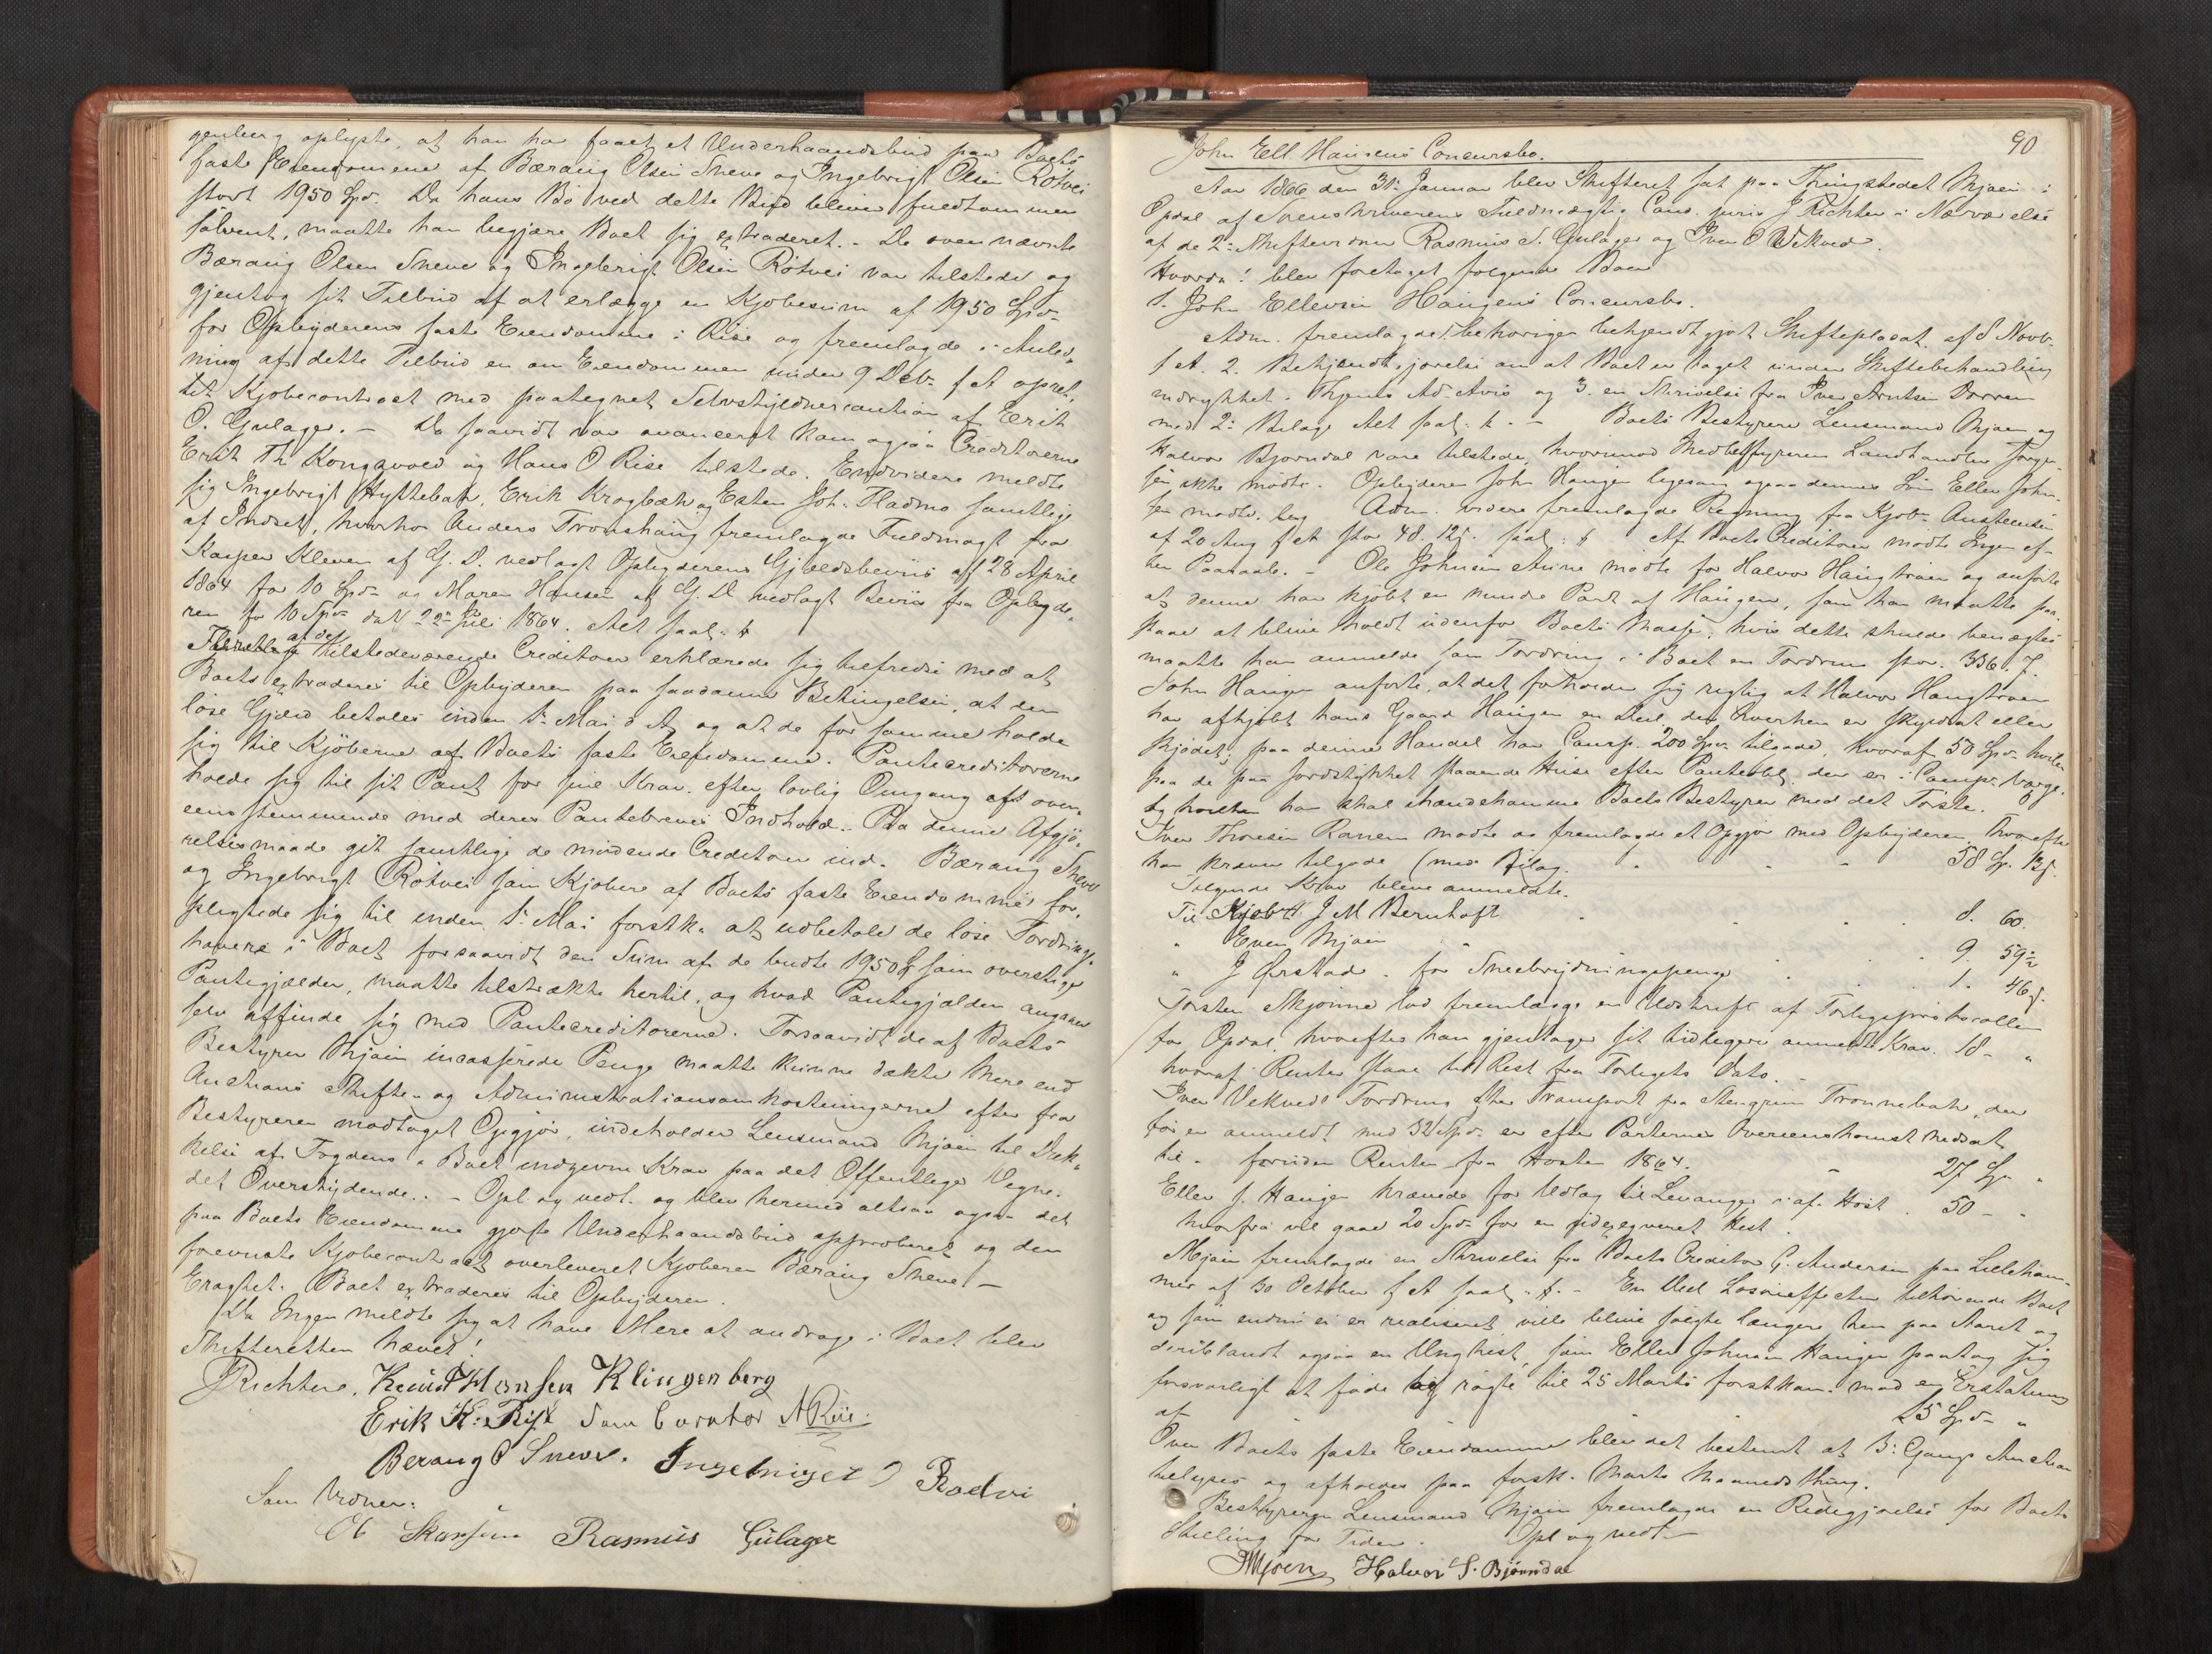 genberg oplyste, at han har faaet et Underhaandsbud paa Boets
faste Eiendomme af Bæraug Olsen Sneve og Ingebrigt Olsen Rötvei
stort 1950 Spd. Da hans Bo ved dette Bud bliver fuldkommen
solvent, maatte han begjære Boet sig extraderet. - De ovennævnte
Bæraug Olsen Sneve og Ingebrigt Olsen Rötvei var tilstede og
gjentog sit Tilbud af at erlægge en Kjøbesum af 1950 Spd.
for Opbyderens faste Eiendomme i Rise og fremlagde i Anled-
ning af dette Tilbud en om Eiendommen under 9 Deb. f A opret-
tet Kjøbecontract med paategnet Selvskyldnercaution af Erik
O. Gulager. - Da saavidt var avanceret kom ogsaa Creditorerne
Erik Th Kongsvold og Hans O Rise tilstede. Endvidere meldte
sig Ingebrigt Hyttebak, Erik Krogbæk og Esten Joh. Fladmo samtlige
af Indset, hvorhos Anders Tronshaug fremlagde Fuldmagt fra
Kasper Kleven af G. D. vedlagt Opbyderens Gjældsbeviis af 28 April
1864 for 10 Spd. og Maren Hansen af G. D. vedlagt Beviis fra Opbyde-
ren for 10 Spd. dat 22 Juli 1864. Alt saal. #
af de
tilstedeværende Creditorer erklærede sig tilfredse med at
Boets extraderes til Opbyderen paa saadanne Betingelser, at den
løse Gjæld betales inden 1te Mai d A, og at de for samme holde
sig til Kjøberne af Boets faste Eiendomme. Pantecreditorerne
holde sig til sit Pant for sine Krav efter lovlig Omgang oft over-
eensstemmende med deres Pantebreves Indhold. Paa denne Afgjö-
relsesmaade gik samtlige de mödende Creditorer ind. Bæraug Sneve
og Ingebrigt Rötvei som Kjøbere af Boets faste Eiendomme for-
pligtede sig til inden 1te Mai førstk. at udbetale de løse Fordrings-
havere i Boet forsaavidt den Sum af de budte 1950 som overstiger
Pantegjælden, maatte tilstrække hertil, og hvad Pantegjælden angaaer
selv affinde sig med Pantecreditorerne. Forsaavidt de af Boets
Bestyrer Mjøen incasserede Penge maatte kunne dække mere end
Auctions Skifte- og Administrationsomkostningerne efter fra
Bestyreren modtaget Opgjør, indeholder Lensmand Mjøen til Dæk-
kelse af Fogdens i Boet indgivne Krav paa det Offentliges Vegne,
det Overskydende. - Opl og vedt. og blev hermed altsaa ogsaa det
paa Boets Eiendomme gjorte Underhaandsbud approberet og den
forevnte Kjøbecontract overleveret Kjøberen Bæraug Sneve -
Eragtet. Boet extraderes til Opbyderen.
Da Ingen meldte sig at have Mere at andrage i Boet blev
Skifteretten hævet!
JRichter. Knud Hansen Klingenberg
Erik K. Rise Som Curator ARise.
Beraug O Sneve. Ingebriget O Rodvi
Som Vidner:
Ol Skarsem Rasmus Gulager
90
John Ell. Haugens Concursbo.
Aar 1866 den 31 Januar blev Skifteret sat paa Thingstedet Mjøen i
Opdal af Sorenskriverens Fuldmægtig Cand. juris J Richter i Nærværelse
af de 2de Skiftevidner Rasmus S. Gulager og Iver O Vekved.
Hvorda! blev foretaget følgende Boer
1. John Ellevsen Haugens Concursbo.
Adm. fremlagde 1. behørigen bekjendtgjort Skifteplacat af 8 Novb.
f A. 2. Bekjendtgjørelse om at Boet er taget under Skiftebehandling
indrykket i Thjems Ad. Avis og 3. en Skrivelse fra Iver Arntsen Dorren
med 2de Bilage Alt saal. #. - Boets Bestyrere Lensmand Mjøen og
Halvor Bjørndal vare tilstede, hvorimod Medbestyreren Landhandler Jørgen-
sen ikke mødte. Opbyderen John Haugen ligesaa ogsaa dennes Søn Ellev John-
sen mødte. Adm. videre fremlagde Regning fra Kjøbm. Austeensen
af 20 Aug f A stor 48. 12s. saal: # Af Boets Creditorer mødte Ingen ef-
ter Paaraab. - Ole Johnsen Aune mødte for Halvor Haugtrøen og anførte
at denne har kjøbt en mindre Part af Haugen, som han maatte paa-
staae at blive holdt udenfor Boets Masse; hvis dette skulde benægtes
maatte han anmelde som Fordring i Boet en Fordring stor. 336. 7.
John Haugen anførte, at det forholder sig rigtig at Halvor Haugtrøen
har afkjøbt hans Gaard Haugen en Deel, der hverken er skyldsat eller
skjødet; paa denne Handel har Comp. 200 Spd. tilgode, hvoraf 50 Spd. hviler
paa de paa Jordstykket staaende Huse efter Pantebl. der er i Comp. Værge,
og hvilken han skal ihændekomme Boets Bestyrer med det Første.
Iver Thoresen Ranem mødte og fremlagde et Opgjør med Opbyderen, hvorefter
han kræver tilgode (med Bilag. 58 Sp. 12s.
Følgende Krav bleve anmeldte.
Til Kjøbm. J M Bernhoft . 8. 60.
" Even Mjøen 9. 59½
" J Ørstad. for Sneebrydningspenge 1. 46s.
Torsten Skjønne lod fremlægge en Udskrift af Forligsprotocollen
for Opdal, hvorefter han gjentager sit tidligere anmeldte Krav. 18 - "
hvoraf Renter staae til Rest fra Forligets Dato. -
Iver Vekveds Fordring efter Transport fra Stengrim Tronnebak, der
før er anmeldt med 32 Spd. er efter Parternes Overeenskomst nedsat
til - foruden Renter fra Høsten 1864. 27 Sp. "
Ellev J. Haugen krævede for Udlæg til Levanger i af. Høst . 50 - "
hvorfra vil gaae 20 Spd. for en sidexegveret Hest.
Mjøen fremlagde en Skrivelse fra Boets Creditor G. Andersen paa Lilleham-
mer af 30 October f A saal. #. - En Deel Løsøreeffecter tilhørende Boet
og som endnu ei er realiseret ville blive solgte længere hen paa Aaret og
deriblandt ogsaa en Unghest, som Ellev Johnsen Haugen paatog sig
forsvarligt at føde og røgte til 25 Marts førstkom. mod en Erstatning
af 25 Spd. "
Over Boets faste Eiendomme blev det bestemt at 3: Gangs Auction
belyses og afholdes paa førstk. Marts Maaneds thing.
Bestyreren Lensmand Mjøen fremlagde en Redegjørelse for Boets
Stilling for Tiden. Opl og vedt.
JMjøen Halvor S. Bjørndal